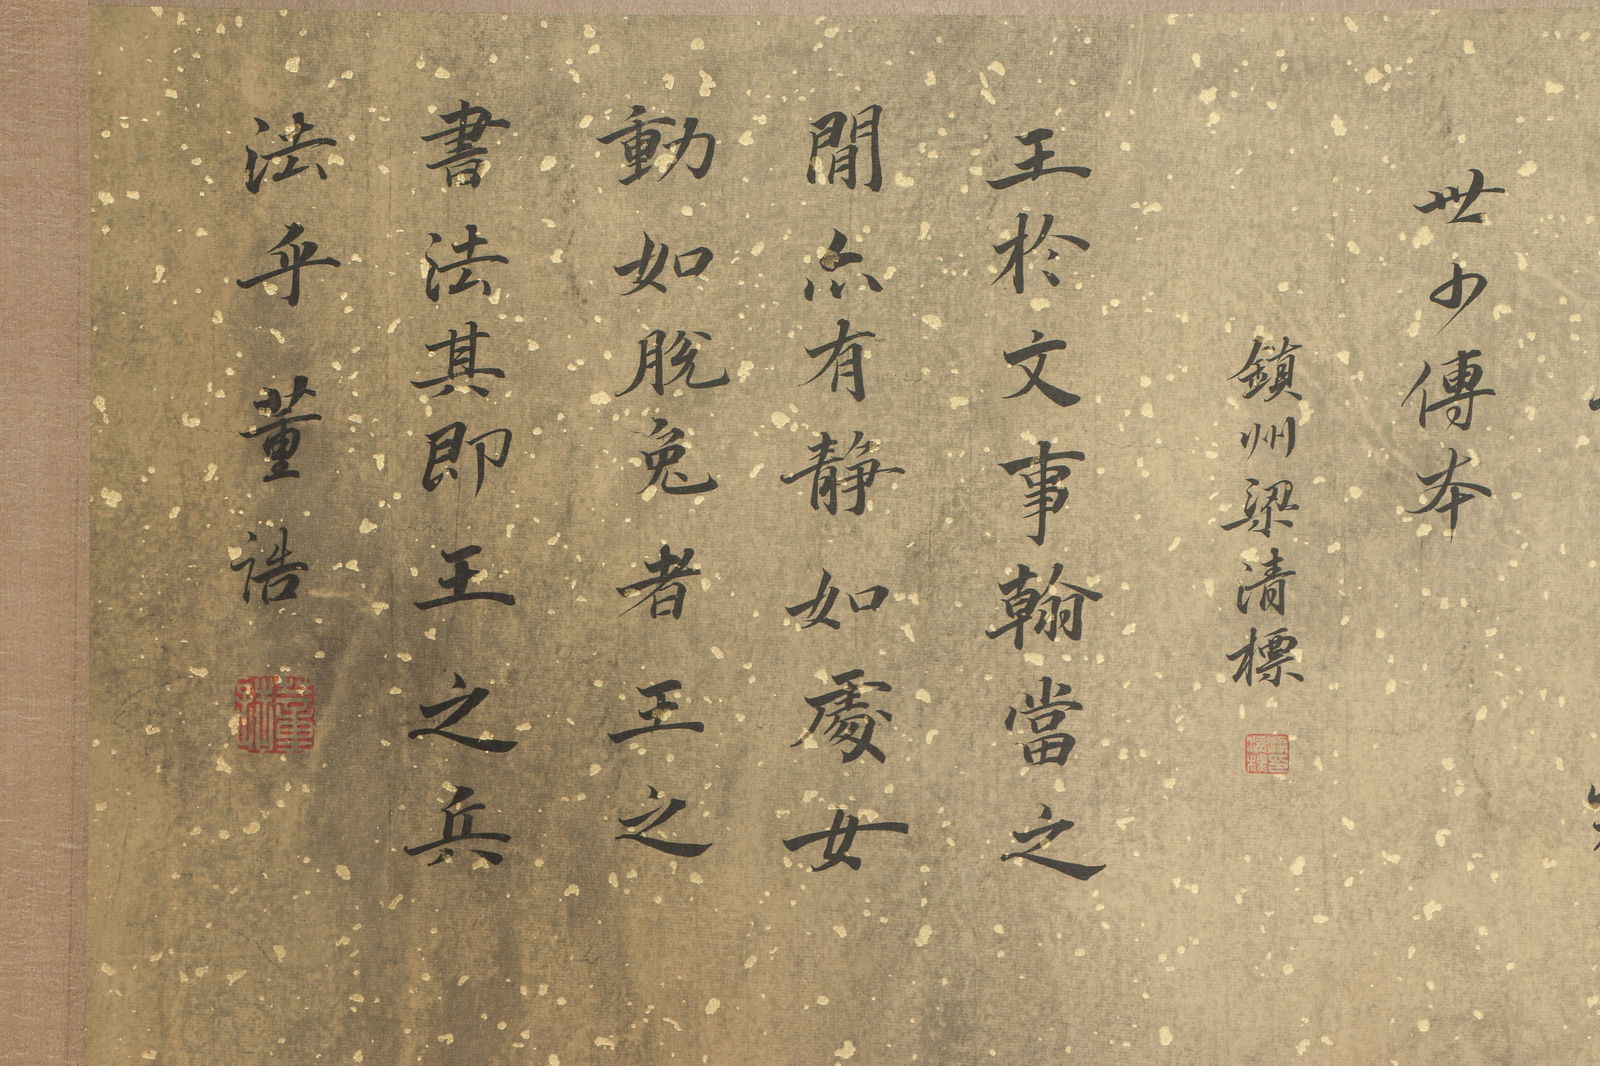 世少傳本
鎮州梁清標
王於文事翰當之
閒亦有静如處女
動如脫兔者王之
書法其即王之兵
法乎 董誥